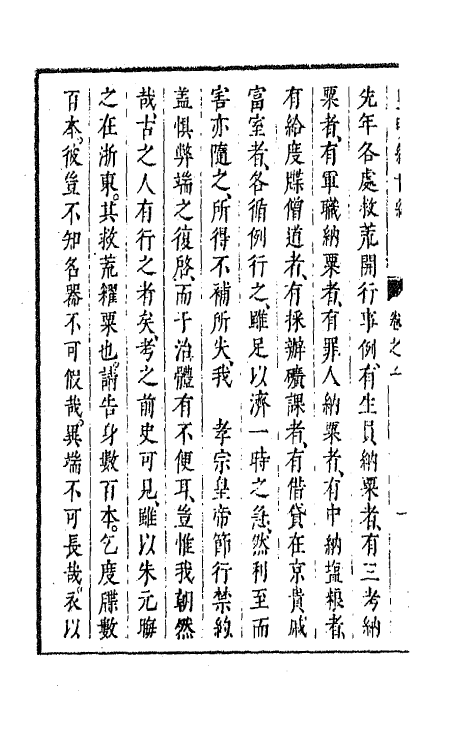 先年各處救荒開行事例、有生員納粟者、有三考納
粟者、有軍職納粟者、有罪人納粟者、有中納塩粮者、
有給度牒僧道者、有採辦礦課者、有借貸在京貴戚
富室者、各循例行之、雖足以濟一時之急、然利至而
害亦隨之、所得不補所失、我 孝宗皇帝節行禁約
盖惧弊端之復啓、而于治體有不便耳、豈惟我朝然
哉、古之人有行之者矣、考之前史可見、雖以朱元晦
之在浙東。其救荒糴粟也。請告身數百本。乞度牒數
百本。彼豈不知名器不可假哉。異端不可長哉。衣以